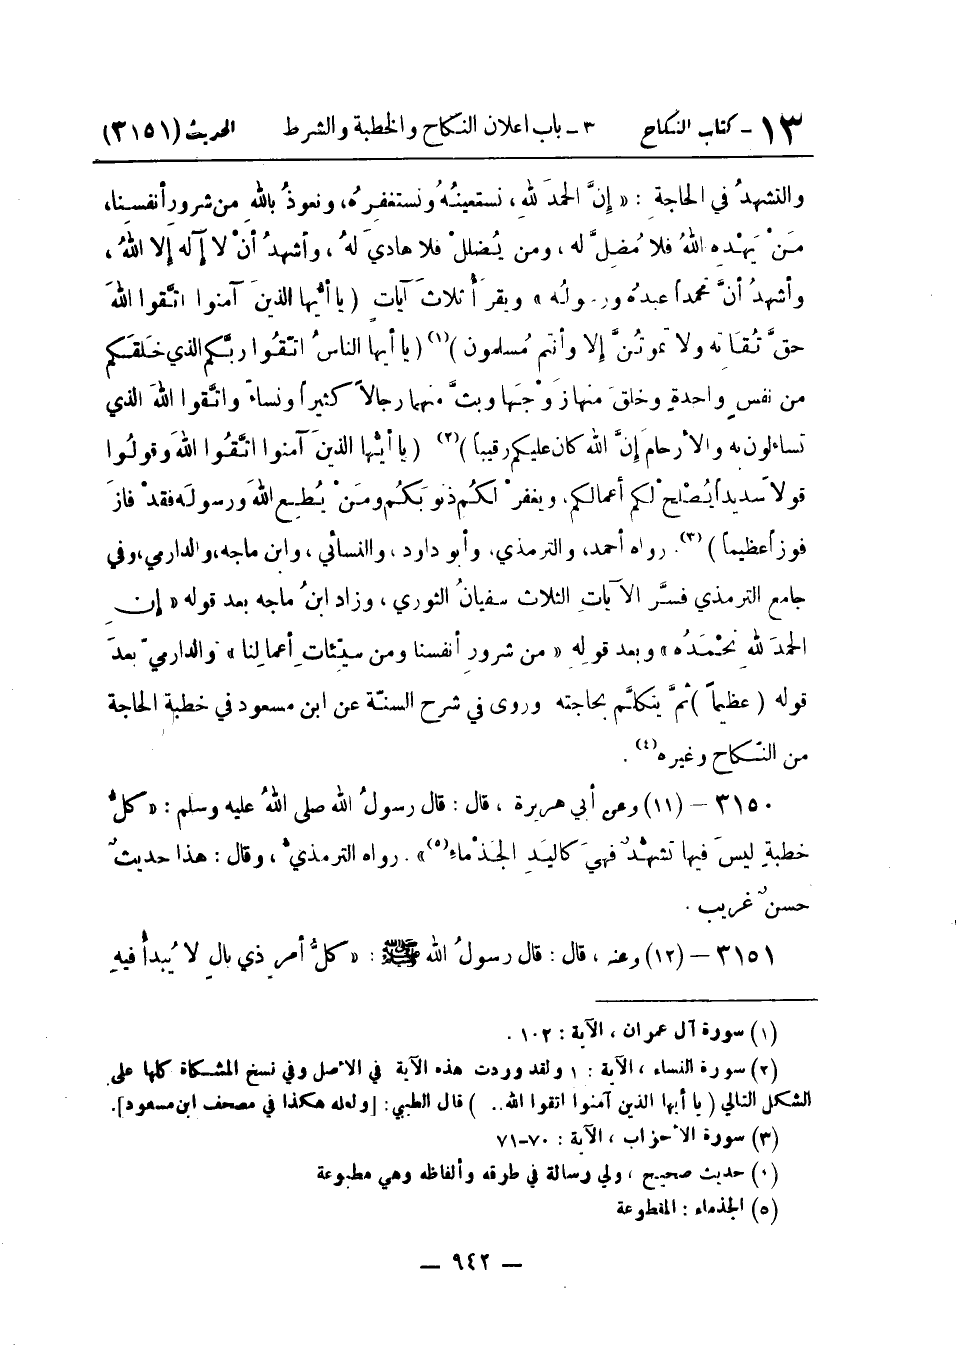 ١٣ - كتاب النكاح ٣ - باب اعلان النكاح والخطبة والشرط الحديث (٣١٥١)
والتشهدُ في الحاجةِ : « إنَّ الحمدَ للهِ ، نستعينُهُ ونستغفِرُه، ونعوذُ باللهِ من شرورِ أنفسِنا،
مَنْ يَهْدِه اللهُ فلا مُضِلَّ له ، ومن يُضلِلْ فلا هاديَ لهُ ، وأشهدُ أنْ لا إلَه إلا اللهُ ،
وأشهدُ أنَّ محمداً عبدُه ورسولُه » ويقرأُ ثلاثَ آياتٍ ( يا أيُّها الذينَ آمنوا اتَّقوا اللهَ
حقَّ تُقَاتِه ولا تموتُنَّ إلا وأنتم مُسلمون )(١) ( يا أيها الناسُ اتقُوا ربَّكم الذي خلقَكم
من نفسٍ واحدةٍ وخلقَ منها زَوْجَها وبثَّ منهما رجالاً كثيراً ونساءً واتَّقوا اللهَ الذي
تساءلون به والأرحامَ إنَّ اللهَ كان عليكم رقيباً )(٢) ( يا أيُّها الذينَ آمنوا اتَّقُوا اللهَ وقولُوا
قولاً سديداً يُصْلِحْ لكم أعمالكم، ويغفرْ لكُم ذنوبَكُم ومَنْ يُطِعِ اللهَ ورسولَه فقدْ فازَ
فوزاً عظيماً )(٣). رواه أحمد، والترمذي، وأبو داود ، والنسائي ، وابن ماجه، والدارمي، وفي
جامع الترمذي فسَّر الآياتِ الثلاث سفيانُ الثوري ، وزاد ابنُ ماجه بعد قوله « إن
الحمدَ للهِ نحْمَدُه » وبعد قولِه « من شرورِ أنفسنا ومن سيّئاتِ أعمالِنا » والدارميّ بعدَ
قوله ( عظيماً ) ثمَّ يتكلَّم بحاجته وروى في شرح السنّة عن ابن مسعود في خطبة الحاجة
من النّكاح وغيره(٤) .
٣١٥٠ – (١١) وعن أبي هريرة ، قال : قال رسولُ الله صلى اللهُ عليه وسلم : « كلُّ
خطبةٍ ليسَ فيها تشهُّدٌ فهيَ كاليَدِ الجَذْماءِ(٥)» . رواه الترمذيُّ ، وقال : هذا حديثٌ
حسنٌ غريب .
٣١٥١ – (١٢) وعنه ، قال : قال رسولُ اللهِ ﷺ : « كلُّ أمرٍ ذي بالٍ لا يُبدأُ فيهِ
(١) سورة آل عمران ، الآية : ١٠٢ .
(٢) سورة النساء ، الآية : ١ ولقد وردت هذه الآية في الأصل وفي نسخ المشكاة كلها على
الشكل التالي ( يا أيها الذين آمنوا اتقوا الله .. ) قال الطيبي : [ولعله هكذا في مصحف ابن مسعود].
(٣) سورة الأحزاب ، الآية : ٧٠-٧١
(٤) حديث صحيح ، ولي رسالة في طرقه وألفاظه وهي مطبوعة
(٥) الجذماء : المقطوعة
— ٩٤٢ —